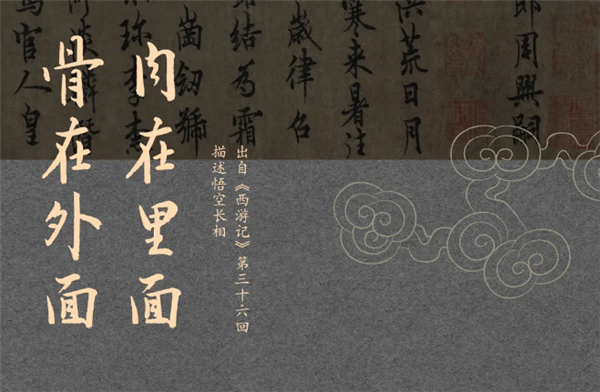 郎周興嗣
洪荒日月
寒来暑往
歲律呂
結為霜
珍李柰
官人皇
肉在里面
骨在外面
出自《西游记》第三十六回
描述悟空长相